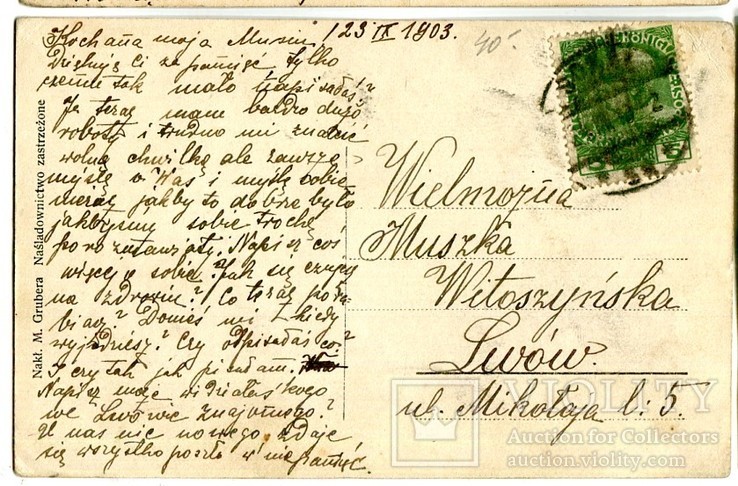 Kochana moja Musiu! 23 IX 1903.
Dziękuję Ci za pamięć tylko
czemu tak mało napisałaś?
Ja teraz mam bardzo dużo
roboty i trudno mi znaleść
wolną chwilkę ale zawsze
myślę o Was i myślę sobie
nieraz jakby to dobrze było
jakbyśmy sobie trochę
porozmawiały. Napisz coś
więcej o sobie. Jak się czujesz
na zdrowiu? Co teraz porabiasz?
Donieś mi kiedy
wyjedziesz? Czy odpisałaś co?
I czy tak jak pisałam.
Napisz moje widziałaś kogo
we Lwowie znajomego?
U nas nic nowego zdaje
się wszystko poszło w niepamięć.
40.-
Wielmożna
Muszka
Witoszyńska
Lwów.
ul. Mikołaja l: 5.
Nakł. M. Grubera Naśladownictwo zastrzeżone
VIOLITY
Auction for Collectors
auction.violity.com